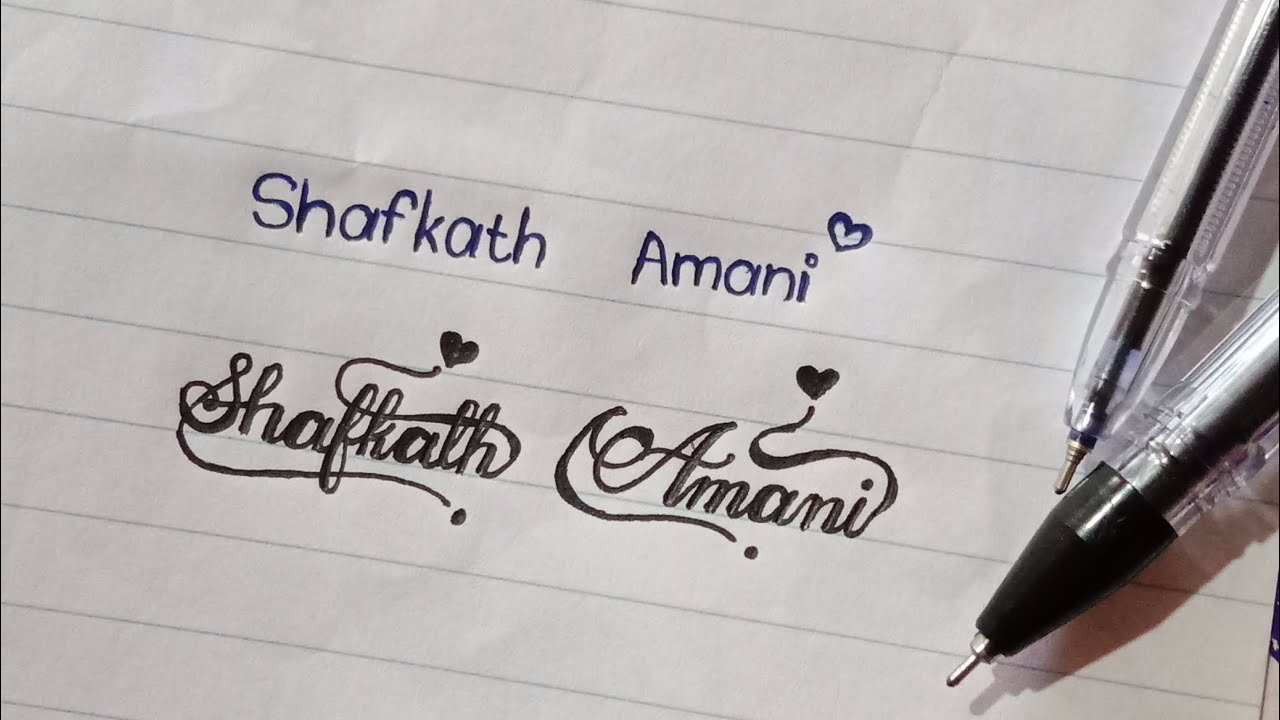 Shafkath Amani
Shafkath Amani